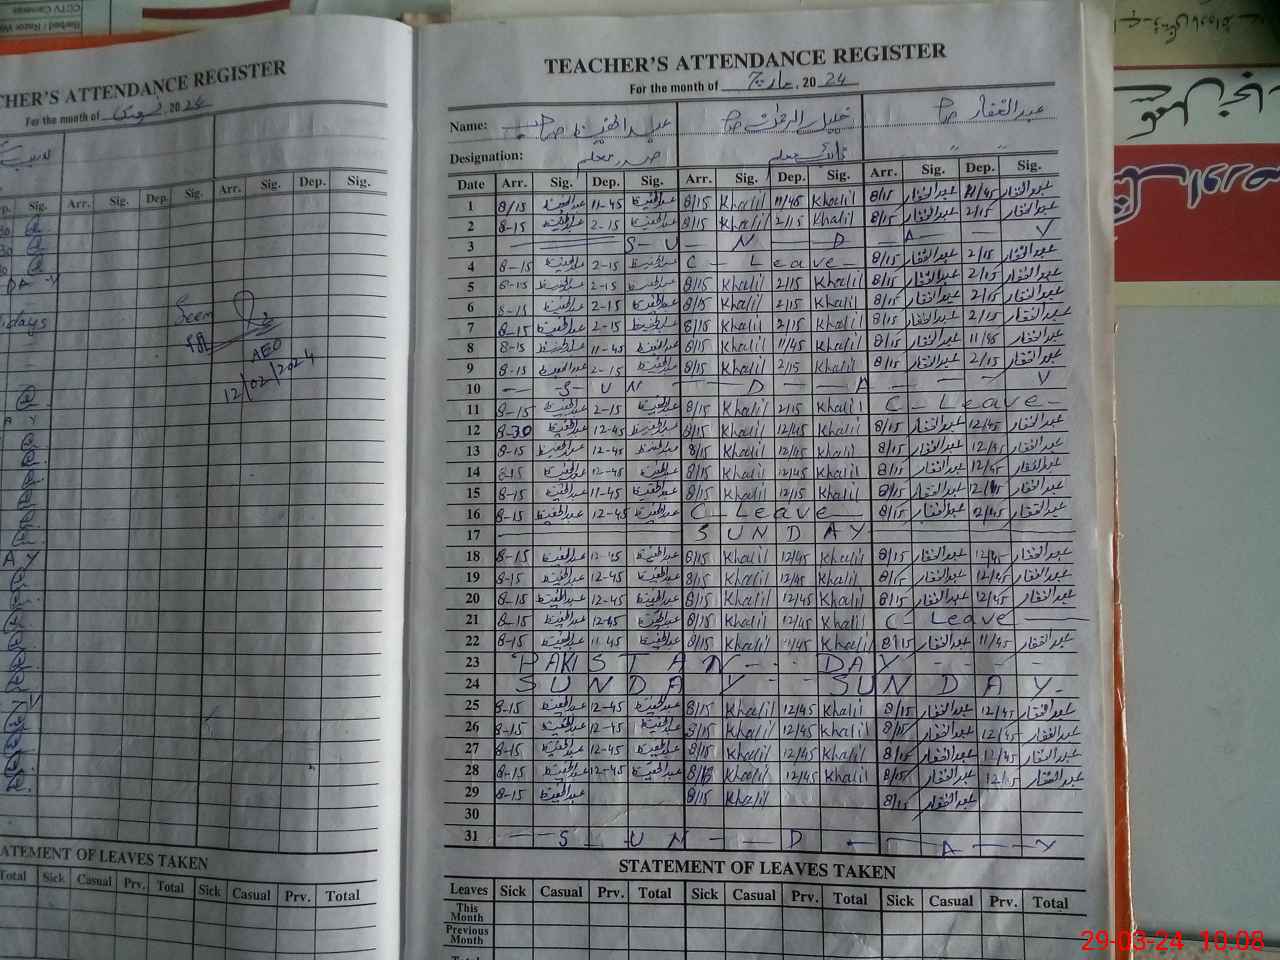 CCTV Cameras
Barbed / Razor
CHER'S ATTENDANCE REGISTER
For the month of 2024
Arr. Sig. Dep. Sig. Arr. Sig. Dep. Sig.
Seen
AEO
12/02/2024
STATEMENT OF LEAVES TAKEN
Total Sick Casual Prv. Total Sick Casual Prv. Total
TEACHER'S ATTENDANCE REGISTER
For the month of مارچ, 2024
Name: عبدالحفیظ صاحب خلیل الرحمٰن صاحب عبدالغفار صاحب
Designation: صدر معلم نائب معلم " "
Date Arr. Sig. Dep. Sig. Arr. Sig. Dep. Sig. Arr. Sig. Dep. Sig.
1 8/15 عبدالحفیظ 11-45 عبدالحفیظ 8/15 Khalil 11/45 Khalil 8/15 عبدالغفار 11/45 عبدالغفار
2 8-15 عبدالحفیظ 2-15 عبدالحفیظ 8/15 Khalil 2/15 Khalil 8/15 عبدالغفار 2/15 عبدالغفار
3 S U N D A Y
4 8-15 عبدالحفیظ 2-15 عبدالحفیظ C - Leave - 8/15 عبدالغفار 2/15 عبدالغفار
5 8-15 عبدالحفیظ 2-15 عبدالحفیظ 8/15 Khalil 2/15 Khalil 8/15 عبدالغفار 2/15 عبدالغفار
6 8-15 عبدالحفیظ 2-15 عبدالحفیظ 8/15 Khalil 2/15 Khalil 8/15 عبدالغفار 2/15 عبدالغفار
7 8-15 عبدالحفیظ 2-15 عبدالحفیظ 8/15 Khalil 2/15 Khalil 8/15 عبدالغفار 2/15 عبدالغفار
8 8-15 عبدالحفیظ 11-45 عبدالحفیظ 8/15 Khalil 11/45 Khalil 8/15 عبدالغفار 11/45 عبدالغفار
9 8-15 عبدالحفیظ 2-15 عبدالحفیظ 8/15 Khalil 2/15 Khalil 8/15 عبدالغفار 2/15 عبدالغفار
10 S U N D A Y
11 8-15 عبدالحفیظ 2-15 عبدالحفیظ 8/15 Khalil 2/15 Khalil C - Leave -
12 8-30 عبدالحفیظ 12-45 عبدالحفیظ 8/15 Khalil 12/45 Khalil 8/15 عبدالغفار 12/45 عبدالغفار
13 8-15 عبدالحفیظ 12-45 عبدالحفیظ 8/15 Khalil 12/45 Khalil 8/15 عبدالغفار 12/45 عبدالغفار
14 8-15 عبدالحفیظ 12-45 عبدالحفیظ 8/15 Khalil 12/45 Khalil 8/15 عبدالغفار 12/45 عبدالغفار
15 8-15 عبدالحفیظ 11-45 عبدالحفیظ 8/15 Khalil 12/15 Khalil 8/15 عبدالغفار عبدالغفار
16 8-15 عبدالحفیظ 12-45 عبدالحفیظ C - Leave 8/15 عبدالغفار 12/45 عبدالغفار
17 S U N D A Y
18 8-15 عبدالحفیظ 12-45 عبدالحفیظ 8/15 Khalil 12/45 Khalil 8/15 عبدالغفار 12/45 عبدالغفار
19 8-15 عبدالحفیظ 12-45 عبدالحفیظ 8/15 Khalil 12/45 Khalil 8/15 عبدالغفار 12/45 عبدالغفار
20 8-15 عبدالحفیظ 12-45 عبدالحفیظ 8/15 Khalil 12/45 Khalil 8/15 عبدالغفار 12/45 عبدالغفار
21 8-15 عبدالحفیظ 12-45 عبدالحفیظ 8/15 Khalil 12/45 Khalil C - Leave
22 8-15 عبدالحفیظ 11-45 عبدالحفیظ 8/15 Khalil 11/45 Khalil 8/15 عبدالغفار 11/45 عبدالغفار
23 PAKISTAN DAY
24 SUNDAY SUNDAY
25 8-15 عبدالحفیظ 12-45 عبدالحفیظ 8/15 Khalil 12/45 Khalil 8/15 عبدالغفار 12/45 عبدالغفار
26 8-15 عبدالحفیظ 12-45 عبدالحفیظ 8/15 Khalil 12/45 Khalil 8/15 عبدالغفار 12/45 عبدالغفار
27 8-15 عبدالحفیظ 12-45 عبدالحفیظ 8/15 Khalil 12/45 Khalil 8/15 عبدالغفار 12/45 عبدالغفار
28 8-15 عبدالحفیظ 12-45 عبدالحفیظ 8/15 Khalil 12/45 Khalil 8/15 عبدالغفار 12/45 عبدالغفار
29 8-15 عبدالحفیظ 8/15 Khalil 8/15 عبدالغفار
30
31 S U N D A Y
STATEMENT OF LEAVES TAKEN
Leaves Sick Casual Prv. Total Sick Casual Prv. Total Sick Casual Prv. Total
This Month
Previous Month
29-03-24 10:08